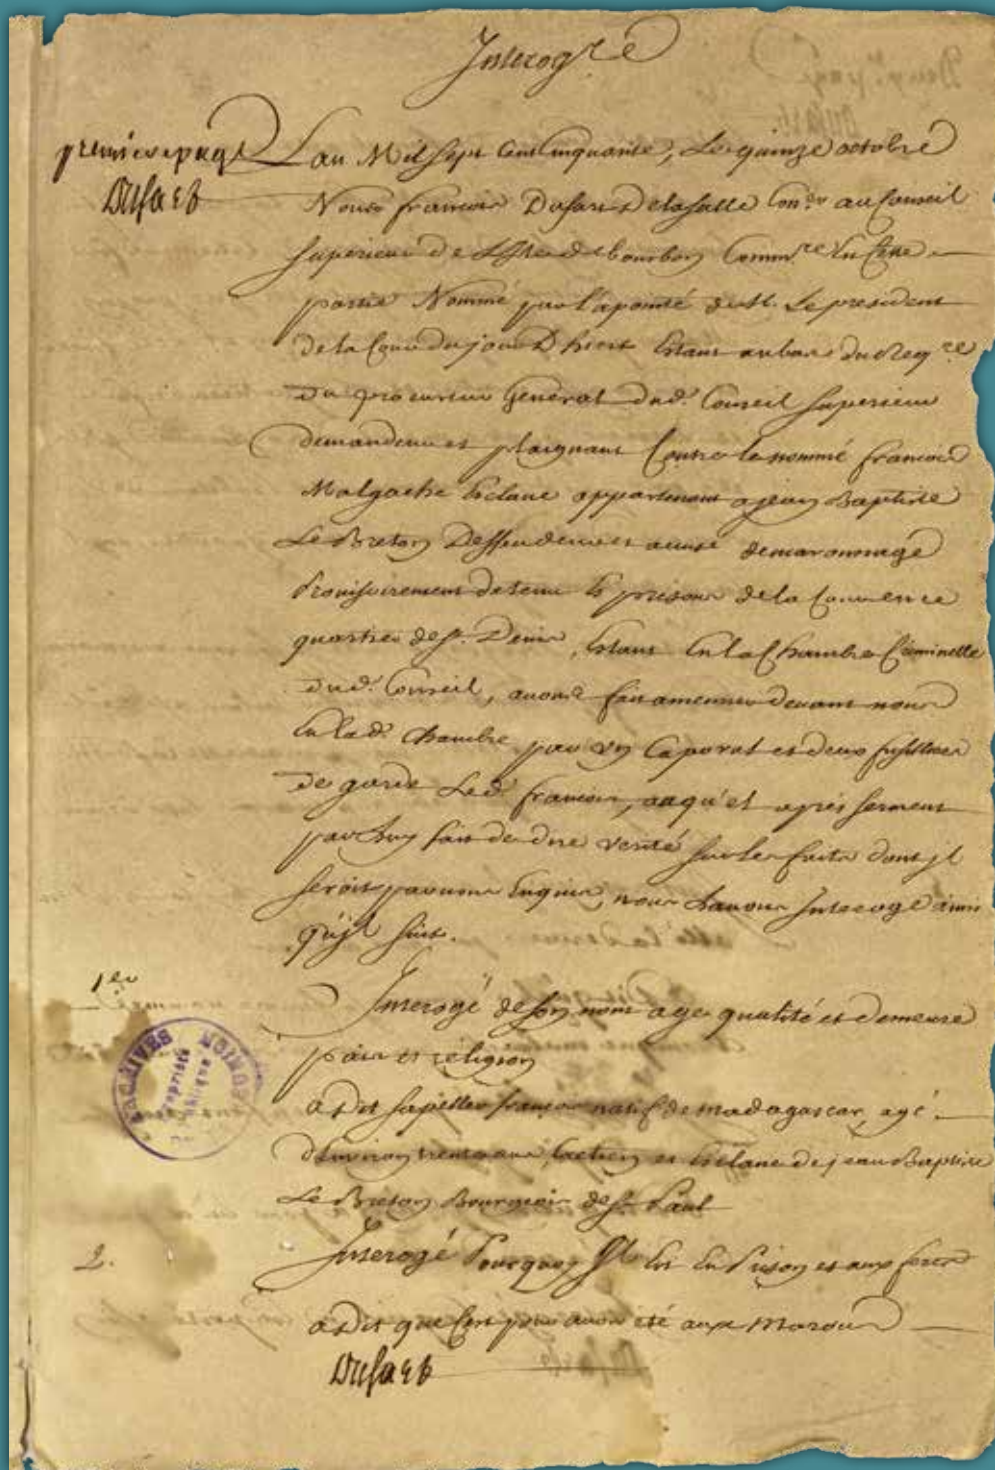 Interog.re
premiere page
Dusart
L'an Mil sept cent cinquante, Le quinze octobre
Nous francois Dusart Delasalle Con.er au Conseil
superieur de L'Isle de bourbon Comm.re En Cette
partie Nommé par l'apointé de M. Le president
de la Cour du jour D'hier Estant au bas du Req.re
du procureur General dud. Conseil superieur
demandeur et plaignant Contre le nommé francois
Malgache Esclave appartenant a jean Baptiste
Le Breton Deffendeur et accusé de maronnage
Provisoirement detenu Es prisons de la
quartier de S.t Denis, Estant En la Chambre Criminelle
dud. Conseil, avons fait amener devant nous
En lad. Chambre par un Caporal et deux fusilliers
de garde Led. francois, auquel et aprés serment
par Luy fait de dire verité sur les faits dont jl
seroit par nous Enquis, nous L'avons Interogé ainsi
qu'jl suit.
1.er
Interogé de son nom age qualité et demeure
païs et religion
a Dit s'apeller francois natif de madagascar, agé
d'Environ trente ans, et Esclave de jean Baptiste
Le Breton Bourgeois de S.t Paul
2.
Interogé Pourquoy Jl Est En Prison et aux fers
a Dit que C'est pour avoir eté aux Marons
Dusart
ARCHIVES REUNION
Propriété
Publique